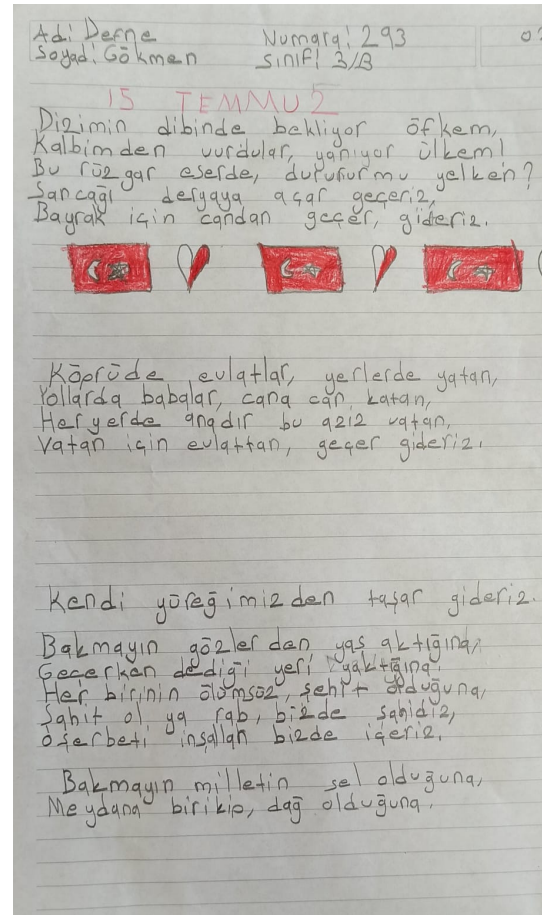 Adi Defne Numara! 293
Soyad! Gökmen Sinif! 3/B
15 TEMMUZ
Dizimin dibinde bekliyor öfkem,
Kalbimden vurdular, yanıyor ülkem!
Bu rüzgar eserde, dururmu yelken?
Sancağı deryaya açar geçeriz,
Bayrak için candan geçer, gideriz.
Köprüde evlatlar, yerlerde yatan,
Yollarda babalar, cana can katan,
Heryerde anadır bu aziz vatan,
Vatan için evlattan, geçer gideriz.
Kendi yüreğimizden taşar gideriz.
Bakmayın gözlerden yaş aktığına,
Geçerken dediği yeri yaktığına
Her birinin ölümsüz, şehit olduğuna,
Şahit ol ya rab, bizde şahidiz,
Oşerbeti inşallah bizde içeriz.
Bakmayın milletin sel olduğuna,
Meydana birikip, dağ olduğuna.